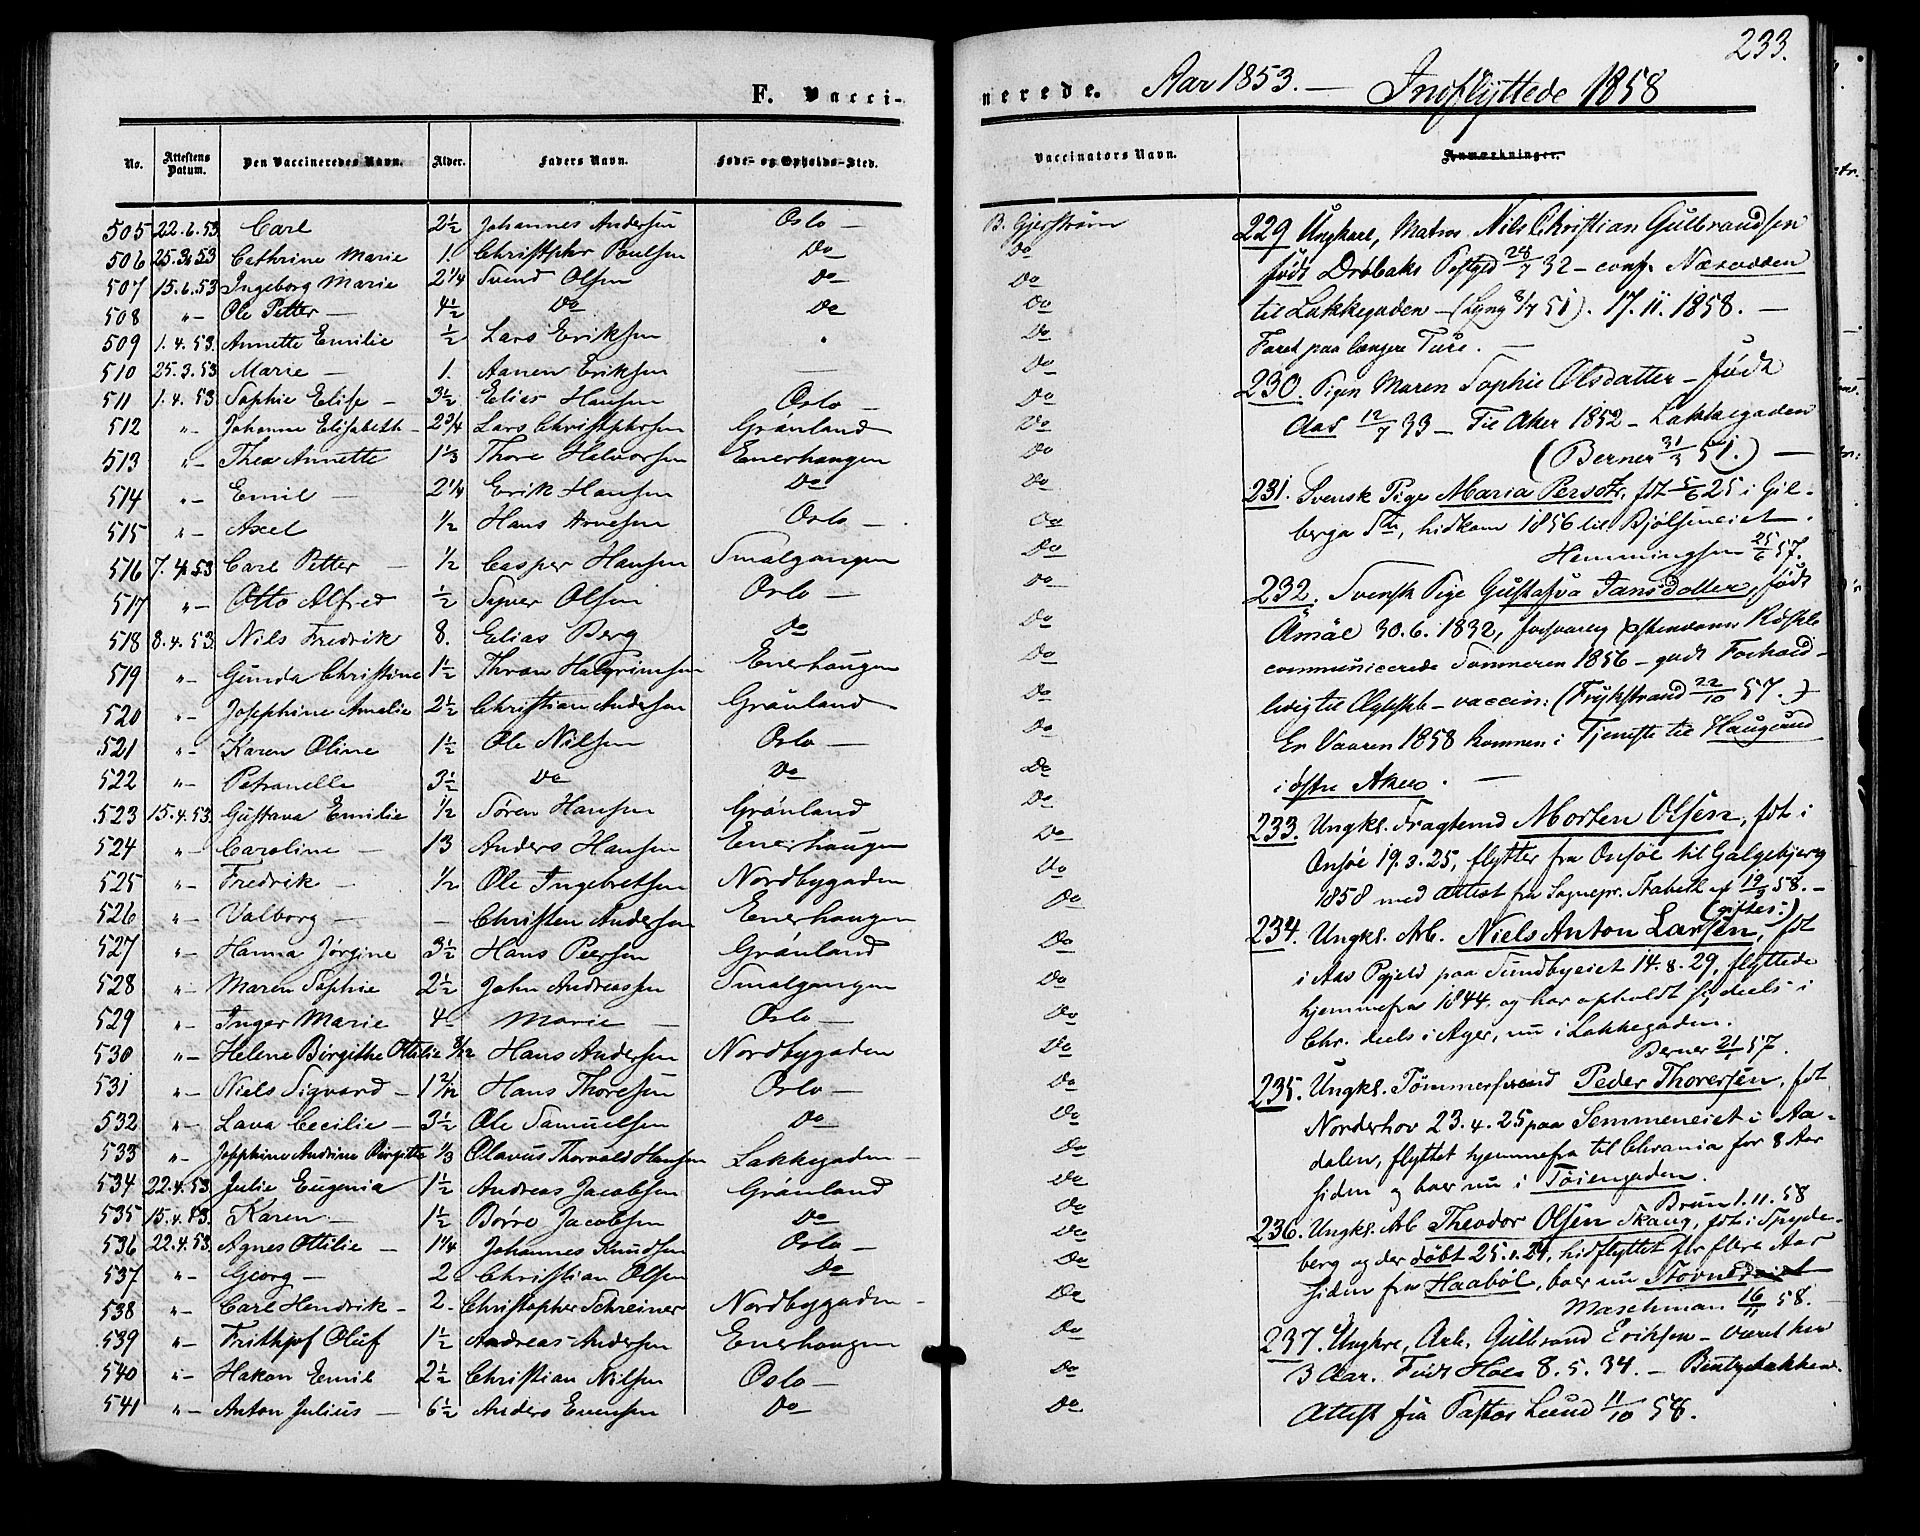 233.
F. Vacci-
nerede. Aar 1853. — Indflyttede 1858
No. Attestens Datum. Den Vaccineredes Navn. Alder. Faders Navn. Føde- og Opholds-Sted.
Vaccinators Navn. Anmærkninger.
505 22.6.53 Carl 2½ Johannes Andersen Oslo — B. Gjerstrøm
506 25.3.53 Cathrine Marie 1. Christopher Poulsen Do Do
507 15.6.53 Ingeborg Marie 2¼ Svend Olsen Do Do
508 "— Ole Petter — 4½ Do Do Do
509 1.4.53. Annette Emilie ½ Lars Eriksen " Do
510 25.3.53 Marie — 1. Aanen Eriksen — Do
511 1.4.53. Sophie Elise — 3½ Elias Hansen Oslo — Do
512 "— Johanne Elisabeth — 2¾ Lars Christophersen Grønland Do
513 "— Thea Annette 1⅓ Thore Halvorsen Enerhaugen Do
514 "— Emil — 2¼ Erik Hansen Do Do
515 "— Axel ½ Hans Arnesen Oslo — Do
516 7.4.53 Carl Petter — ½ Casper Hansen Smalgangen Do
517 "— Otto Alfred ½ Syver Olsen Oslo — Do
518 8.4.53. Niels Fredrik 8. Elias Berg Do Do
519 "— Gunda Christine 1½ Thron Halgrimsen Enerhaugen Do
520 "— Josephine Amalie 2½ Christian Andersen Grønland Do
521 "— Karen Oline 1½ Ole Nilsen Oslo — Do
522 "— Petronelle 3½ Do Do Do
523 15.4.53. Gustava Emilie ½ Søren Hansen Grønland Do
524 "— Caroline — 13 Anders Hansen Enerhaugen Do
525 "— Fredrik — ½ Ole Ingebretsen Nordbygaden Do
526 "— Valborg — — Christen Andersen Enerhaugen Do
527 "— Hanna Jørgine 3½ Hans Peersen Grønland Do
528 "— Maren Sophie 2½ John Andreassen Smalgangen Do
529 "— Inger Marie 4 — Marie — Oslo — Do
530 "— Helene Birgithe Ottilie 8/12 Hans Andersen Nordbygaden Do
531 "— Niels Sigvard — 1 2/12 Hans Thoresen Oslo — Do
532 "— Lava Cecilie — 3½ Ole Samuelsen Do Do
533 "— Josephine Andrine Birgitte ⅓ Olavus Thorvald Hansen Lakkegaden — Do
534 22.4.53. Julie Eugenia 1½ Andreas Jacobsen Grønland Do
535 15.4.53. Karen — 1½ Børre Jacobsen Do Do
536 22.4.53. Agnes Ottilie — 1¼ Johannes Knudsen Oslo — Do
537 "— Georg — 2 Christian Olsen Do Do
538 "— Carl Hendrik — 2. Christopher Schreiner Nordbygaden — Do
539 "— Frithjof Oluf 1½ Andreas Andersen Enerhaugen Do
540 "— Hakon Emil 2½ Christian Nilsen Oslo — Do
541 "— Anton Julius — 6½ Anders Evensen Do Do
229 Ungkarl, Matros Nils Christian Gulbrandsen
født Drøbaks Pstgjd 28/7 32 — conf. Næsodden
til Lakkegaden — (Lyng 8/7 51). 17.11.1858. —
Faret paa længere Ture. —
230. Pigen Maren Sophie Olsdatter — født
Aas 12/7 33 — Til Aker 1852 — Lakkegaden
(Berner 31/3 51.) —
231. Svensk Pige Maria Persdtr, fdt 5/6 25 i Gil-
berga Sn, hidkom 1856 til Bjølseneiet.
Hemmingsen 25/6 57.
232. Svensk Pige Gustafva Jansdotter, født
Åmål 30.6.1832,
communicerede Sommeren 1856 — godt Forhold —
ledig til Ægtsk. — vaccin: (Frykstrand 22/10 57.)
Er Vaaren 1858 kommen i Tjeneste til Haugerud
i østre Aker. —
233. Ungkl. Dragtemd Morten Olsen, fdt i
Onsøe 19.3.25, flytter fra Onsøe til Galgebjerg
1858 med Attest fra Sognepr. Stabell af 19/3 58. —
(giftes:)
234. Ungkl. Arb. Niels Anton Larsen, fdt
i Aas Pgjeld paa Sundbyeiet 14.8.29, flyttede
hjemmefra 1844 og har opholdt sig deels i
Chr. deels i Ager, nu i Lakkegaden.
Berner 21/1 57.
235. Ungkl. Tømmersvend Peder Thoresen, fdt
Norderhov 23.4.25 paa Semmeneiet i Aa-
dalen, flyttet hjemmefra til Chrania for 8 Aar
siden og boer nu i Tøiengaden.
Bruun 1.11.58
236. Ungkl. Arb Theodor Olsen Skaug, fdt i Spyde-
berg og der døbt 25.1.24, hidflyttet for flere Aar
siden fra Haabøl, boer nu Stovnereiet
Maschman 16/11 58.
237. Ungkre, Arb. Gulbrand Eriksen — været her
3 Aar. Født Hole 8.5.34. — Bentzeløkken.
Attest fra Pastor Lund 11/10 58.